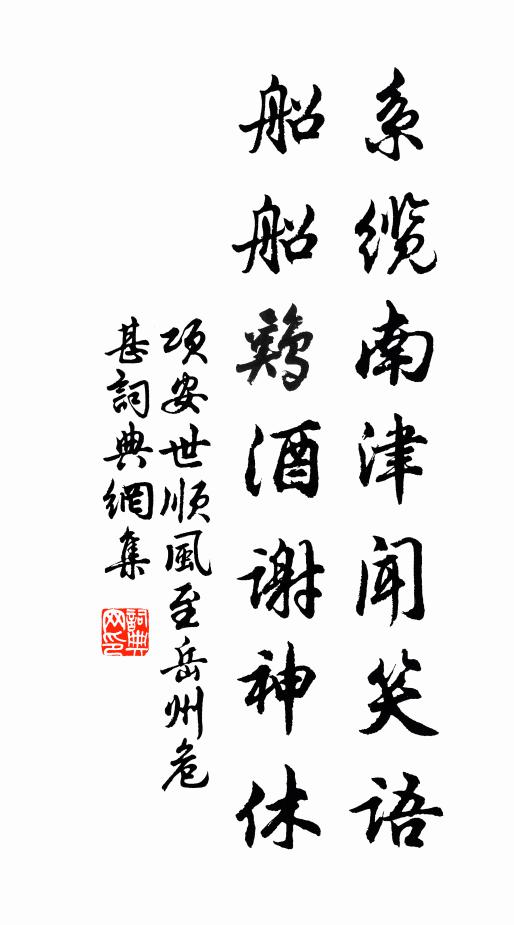 系缆南津闻笑语
船船鷄酒谢神休
项安世顺風至岳州危
甚詞典網集
詞典网印